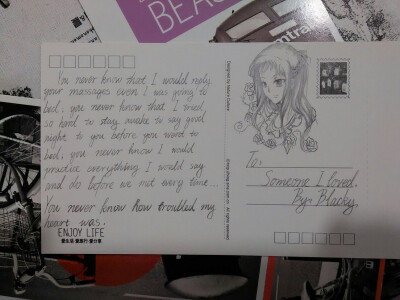 BEA
entra
You never know that I would reply
your messages even I was going to
bed, you never know that I tried
so hard to stay awake to say good
night to you before you went to
bed, you never know I would
practice everything I would say
and do before we met every time...
You never know how troubled my
heart was.
ENJOY LIFE
To:
Someone I loved.
By: Blacky.